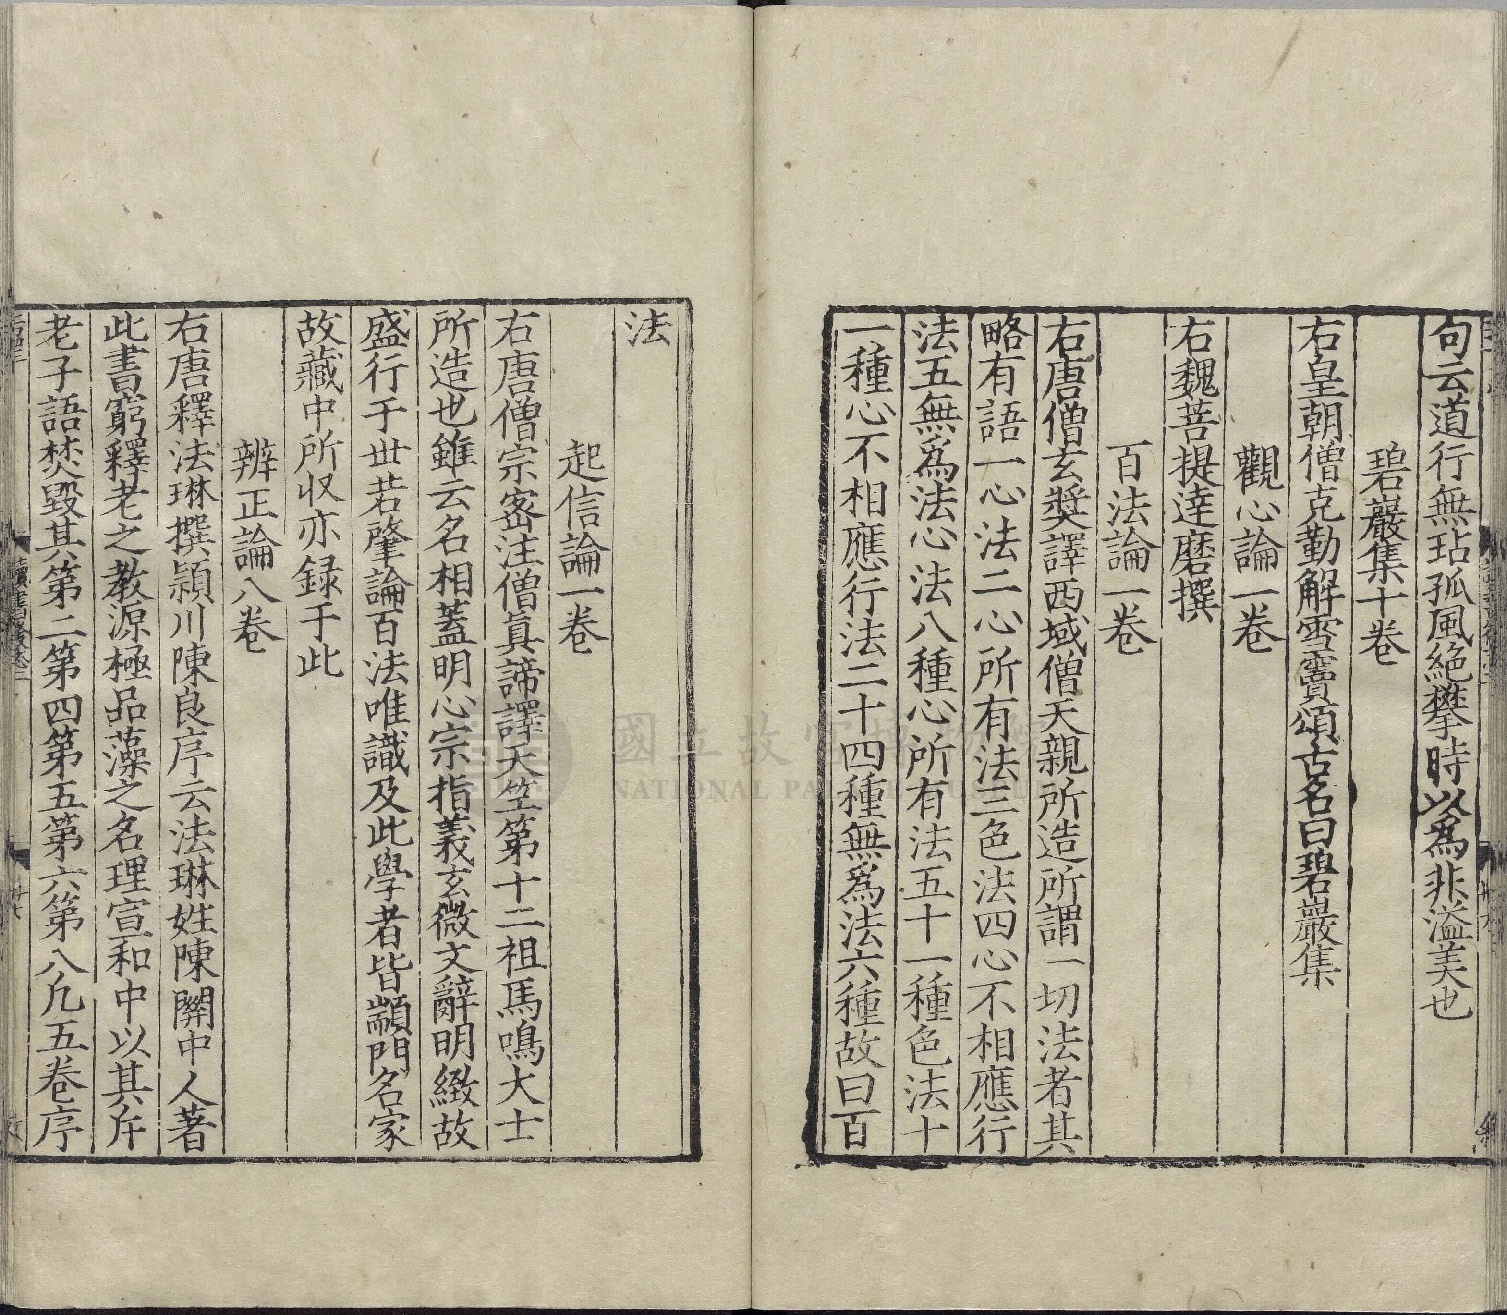 句云道行無玷孤風絶攀時以爲非溢美也
碧巖集十卷
右皇朝僧克勤解雪竇頌古名曰碧巖集
觀心論一卷
右魏菩提達磨撰
百法論一卷
右唐僧玄奘譯西域僧天親所造所謂一切法者其
略有語一心法二心所有法三色法四心不相應行
法五無爲法心法八種心所有法五十一種色法十
一種心不相應行法二十四種無爲法六種故曰百
法
起信論一卷
右唐僧宗密注僧真諦譯天竺第十二祖馬鳴大士
所造也雖云名相蓋明心宗指義玄微文辭明緻故
盛行于世若肇論百法唯識及此學者皆顓門名家
故藏中所収亦録于此
辨正論八卷
右唐釋法琳撰潁川陳良序云法琳姓陳關中人著
此書窮釋老之教源極品藻之名理宣和中以其斥
老子語焚毀其第二第四第五第六第八凡五卷序
國立故宮博物院
NATIONAL PALACE MUSEUM